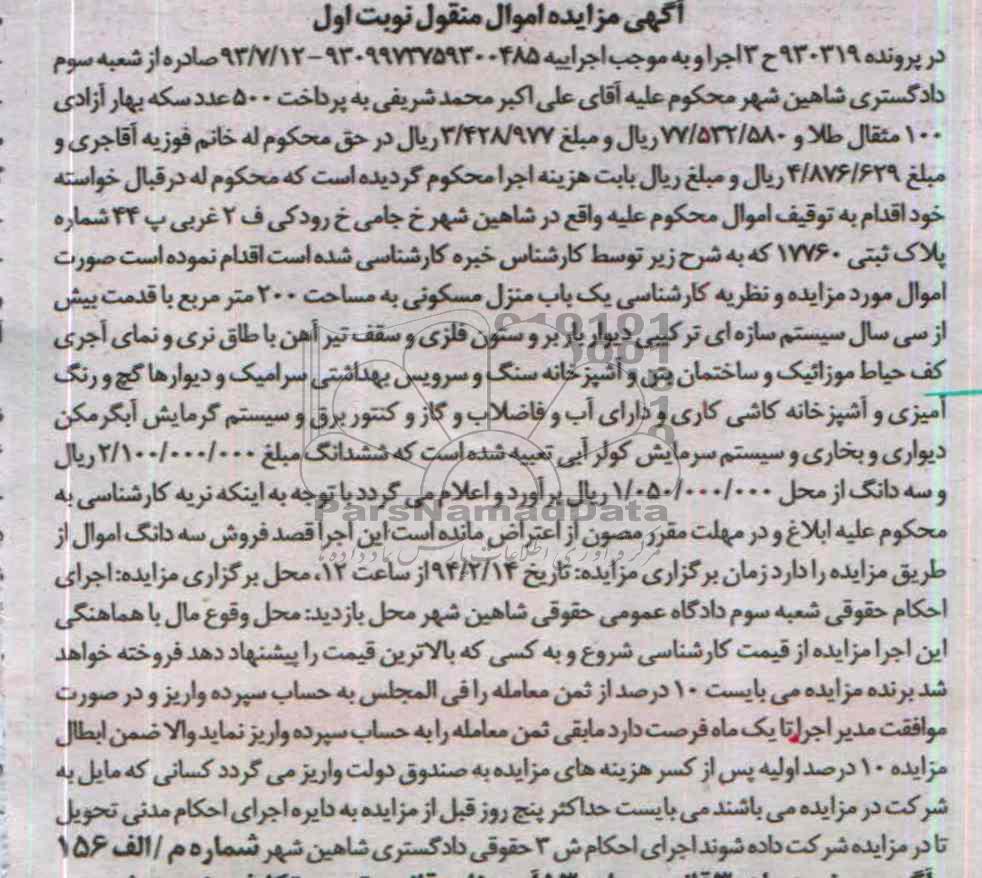 آگهی مزایده اموال منقول نوبت اول
در پرونده ۹۳۰۳۱۹ ح ۳ اجرا و به موجب اجراییه ۹۳۰۹۹۷۳۷۵۹۳۰۰۴۸۵ – ۹۳/۷/۱۲ صادره از شعبه سوم
دادگستری شاهین شهر محکوم علیه آقای علی اکبر محمد شریفی به پرداخت ۵۰۰ عدد سکه بهار آزادی
۱۰۰ مثقال طلا و ۷۷/۵۳۲/۵۸۰ ریال و مبلغ ۳/۴۲۸/۹۷۷ ریال در حق محکوم له خانم فوزیه آقاجری و
مبلغ ۴/۸۷۶/۶۲۹ ریال و مبلغ ریال بابت هزینه اجرا محکوم گردیده است که محکوم له در قبال خواسته
خود اقدام به توقیف اموال محکوم علیه واقع در شاهین شهر خ جامی خ رودکی ف ۲ غربی پ ۴۴ شماره
پلاک ثبتی ۱۷۷۶۰ که به شرح زیر توسط کارشناس خبره کارشناسی شده است اقدام نموده است صورت
اموال مورد مزایده و نظریه کارشناسی یک باب منزل مسکونی به مساحت ۲۰۰ متر مربع با قدمت بیش
از سی سال سیستم سازه ای ترکیبی دیوار باربر و ستون فلزی و سقف تیر آهن با طاق نری و نمای آجری
کف حیاط موزائیک و ساختمان بتن و آشپزخانه سنگ و سرویس بهداشتی سرامیک و دیوارها گچ و رنگ
آمیزی و آشپزخانه کاشی کاری و دارای آب و فاضلاب و گاز و کنتور برق و سیستم گرمایش آبگرمکن
دیواری و بخاری و سیستم سرمایش کولر آبی تعبیه شده است که ششدانگ مبلغ ۲/۱۰۰/۰۰۰/۰۰۰ ریال
و سه دانگ از محل ۱/۰۵۰/۰۰۰/۰۰۰ ریال برآورد و اعلام می گردد با توجه به اینکه نریه کارشناسی به
ParsNamadData
محکوم علیه ابلاغ و در مهلت مقرر مصون از اعتراض مانده است این اجرا قصد فروش سه دانگ اموال از
طریق مزایده را دارد زمان برگزاری مزایده: تاریخ ۹۴/۲/۱۴ از ساعت ۱۲، محل برگزاری مزایده: اجرای
احکام حقوقی شعبه سوم دادگاه عمومی حقوقی شاهین شهر محل بازدید: محل وقوع مال با هماهنگی
این اجرا مزایده از قیمت کارشناسی شروع و به کسی که بالاترین قیمت را پیشنهاد دهد فروخته خواهد
شد برنده مزایده می بایست ۱۰ درصد از ثمن معامله را فی المجلس به حساب سپرده واریز و در صورت
موافقت مدیر اجرا تا یک ماه فرصت دارد مابقی ثمن معامله را به حساب سپرده واریز نماید والا ضمن ابطال
مزایده ۱۰ درصد اولیه پس از کسر هزینه های مزایده به صندوق دولت واریز می گردد کسانی که مایل به
شرکت در مزایده می باشند می بایست حداکثر پنج روز قبل از مزایده به دایره اجرای احکام مدنی تحویل
تا در مزایده شرکت داده شوند اجرای احکام ش ۳ حقوقی دادگستری شاهین شهر شماره م / الف ۱۵۶